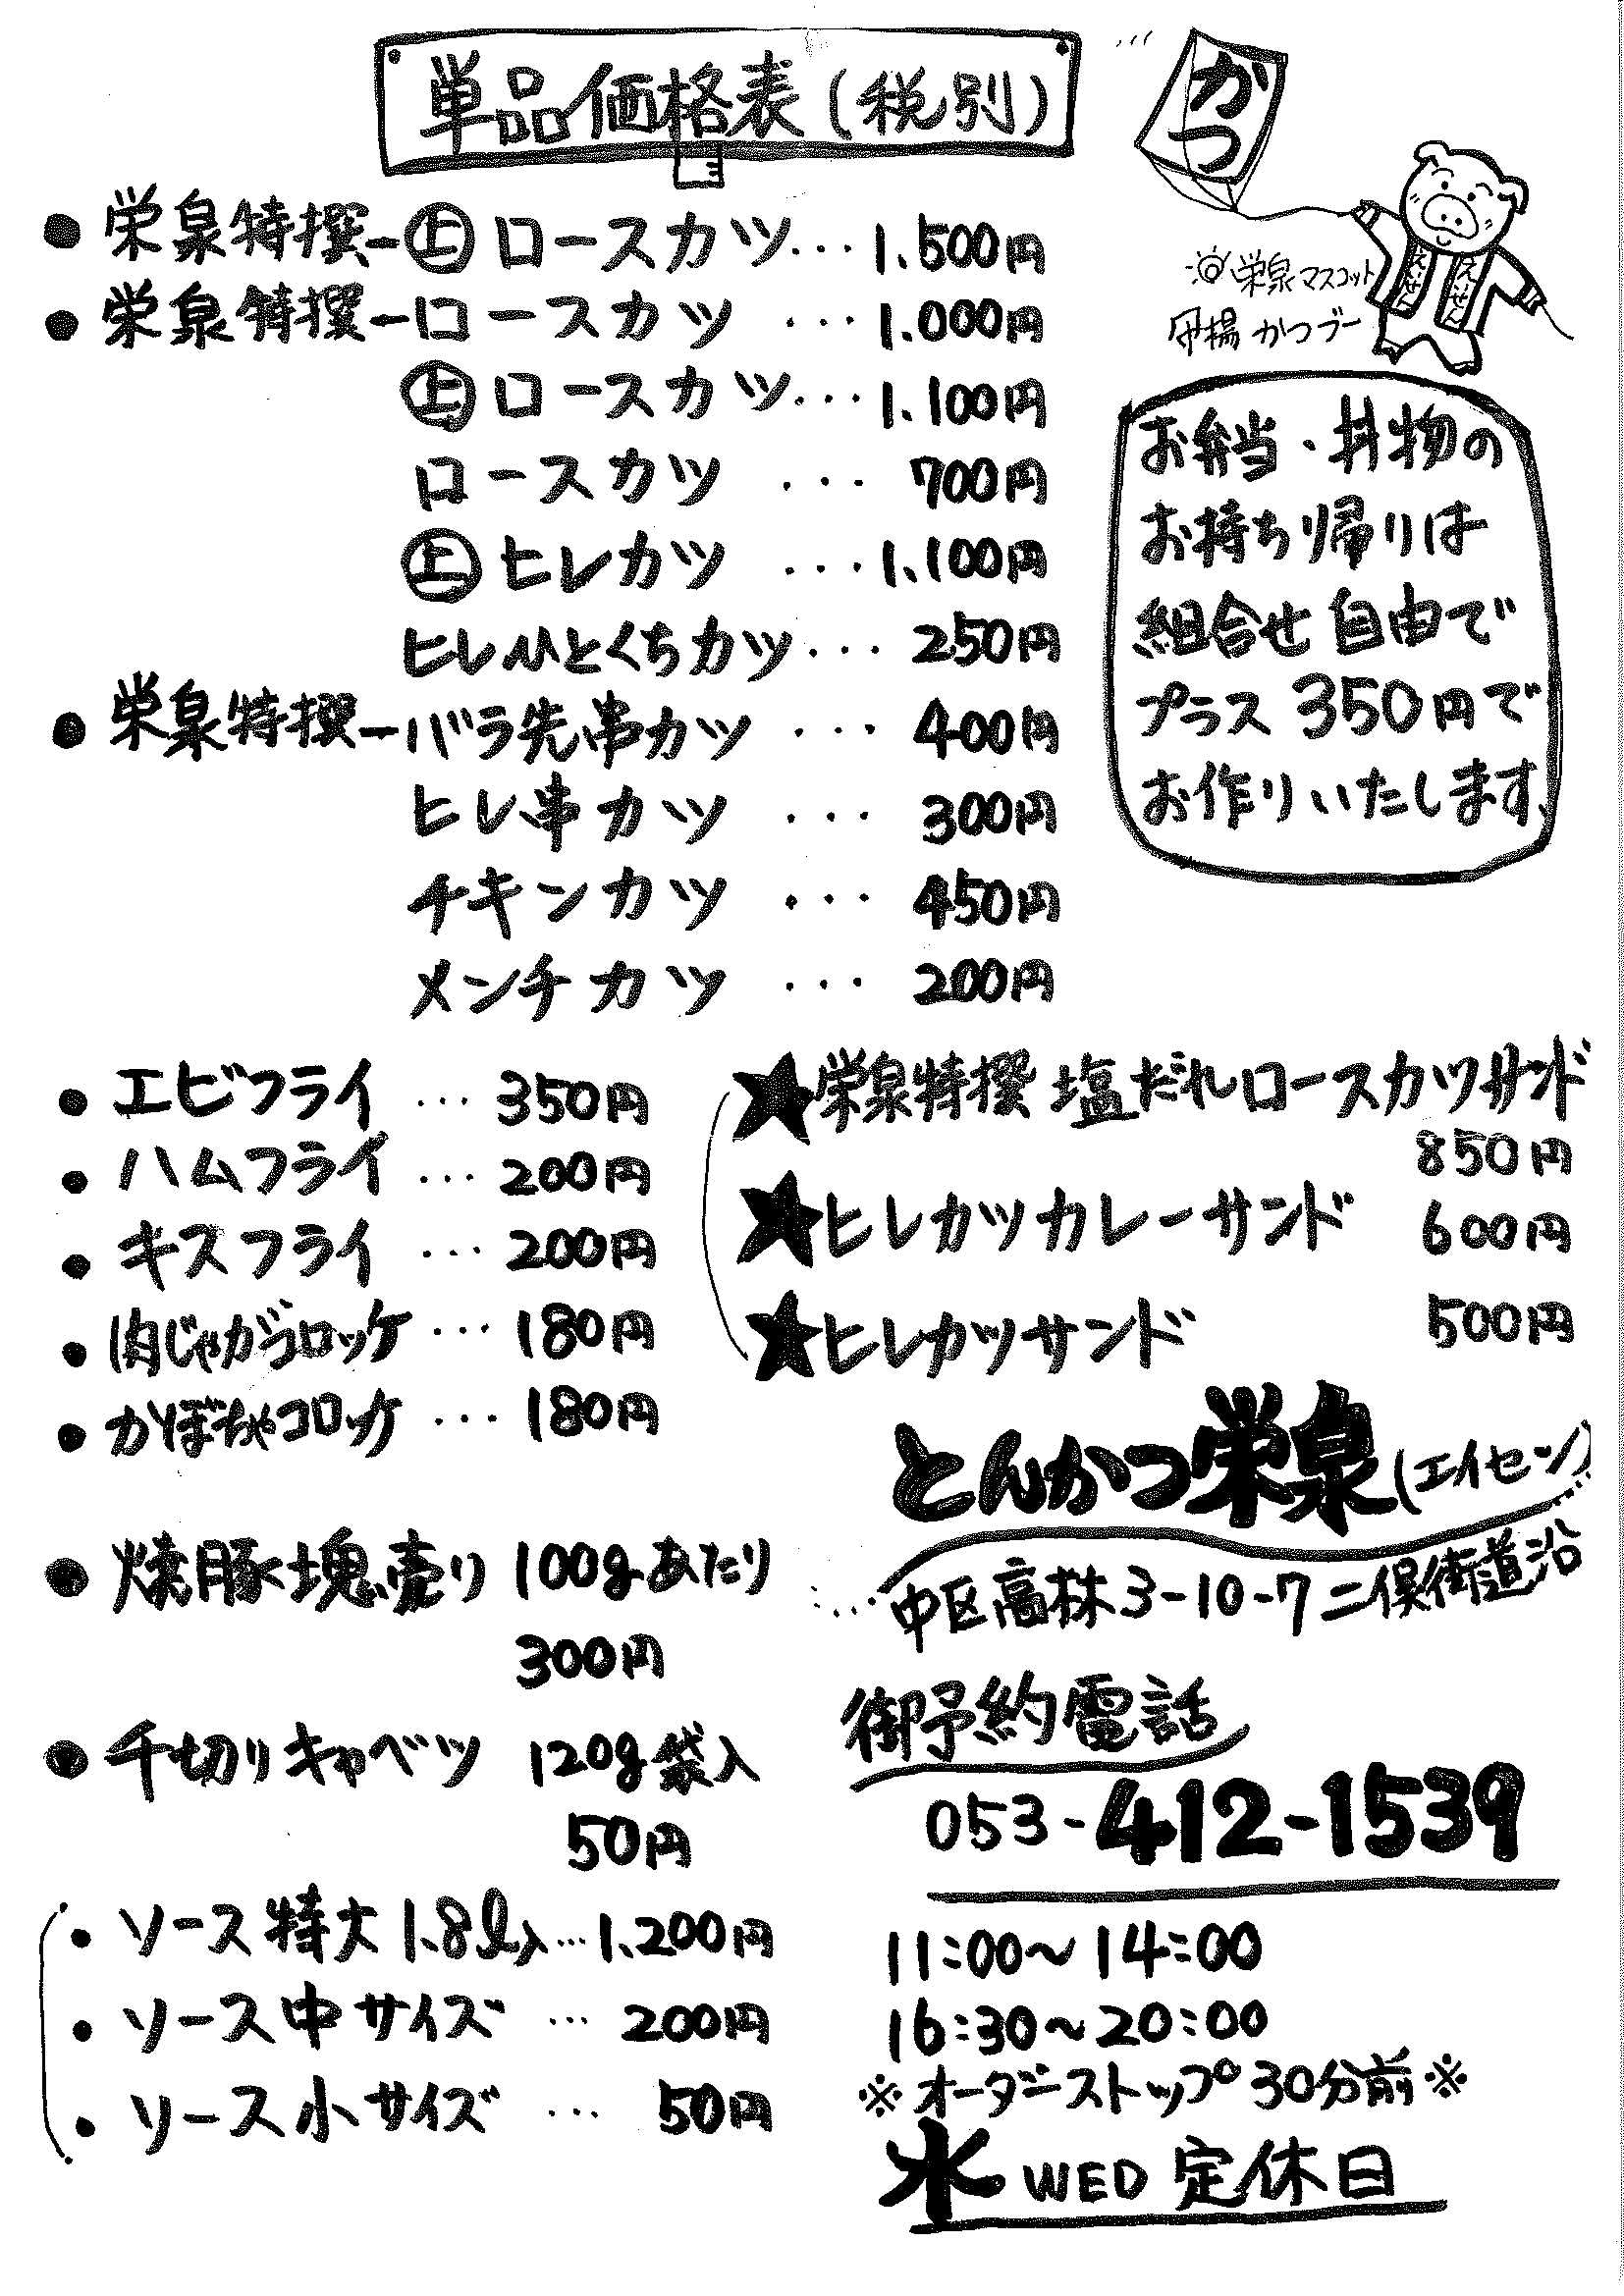 単品価格表(税別)
かつ
● 栄泉特撰-㊤ロースカツ・・・1.500円
● 栄泉特撰-ロースカツ ・・・1.000円
㊤ロースカツ・・・1.100円
ロースカツ ・・・700円
㊤ヒレカツ ・・・1.100円
ヒレひとくちカツ・・・250円
● 栄泉特撰-バラ先串カツ ・・・400円
ヒレ串カツ ・・・300円
チキンカツ ・・・450円
メンチカツ ・・・200円
栄泉マスコット
かつブー
えいせん
えいせん
お弁当・丼物の
お持ち帰りは
組合せ自由で
プラス350円で
お作りいたします。
● エビフライ ・・・350円
● ハムフライ ・・・200円
● キスフライ ・・・200円
● 肉じゃがコロッケ ・・・180円
● かぼちゃコロッケ ・・・180円
● 焼豚塊売り 100gあたり
300円
● 千切りキャベツ 120g袋入
50円
・ソース特大1.8ℓ入…1.200円
・ソース中サイズ …200円
・ソース小サイズ …50円
★栄泉特撰 塩だれロースカツサンド
850円
★ヒレカツカレーサンド 600円
★ヒレカツサンド 500円
とんかつ栄泉(エイセン)
中区高林3-10-7 二俣街道沿
御予約電話
053-412-1539
11:00~14:00
16:30~20:00
※オーダーストップ30分前※
水 WED 定休日